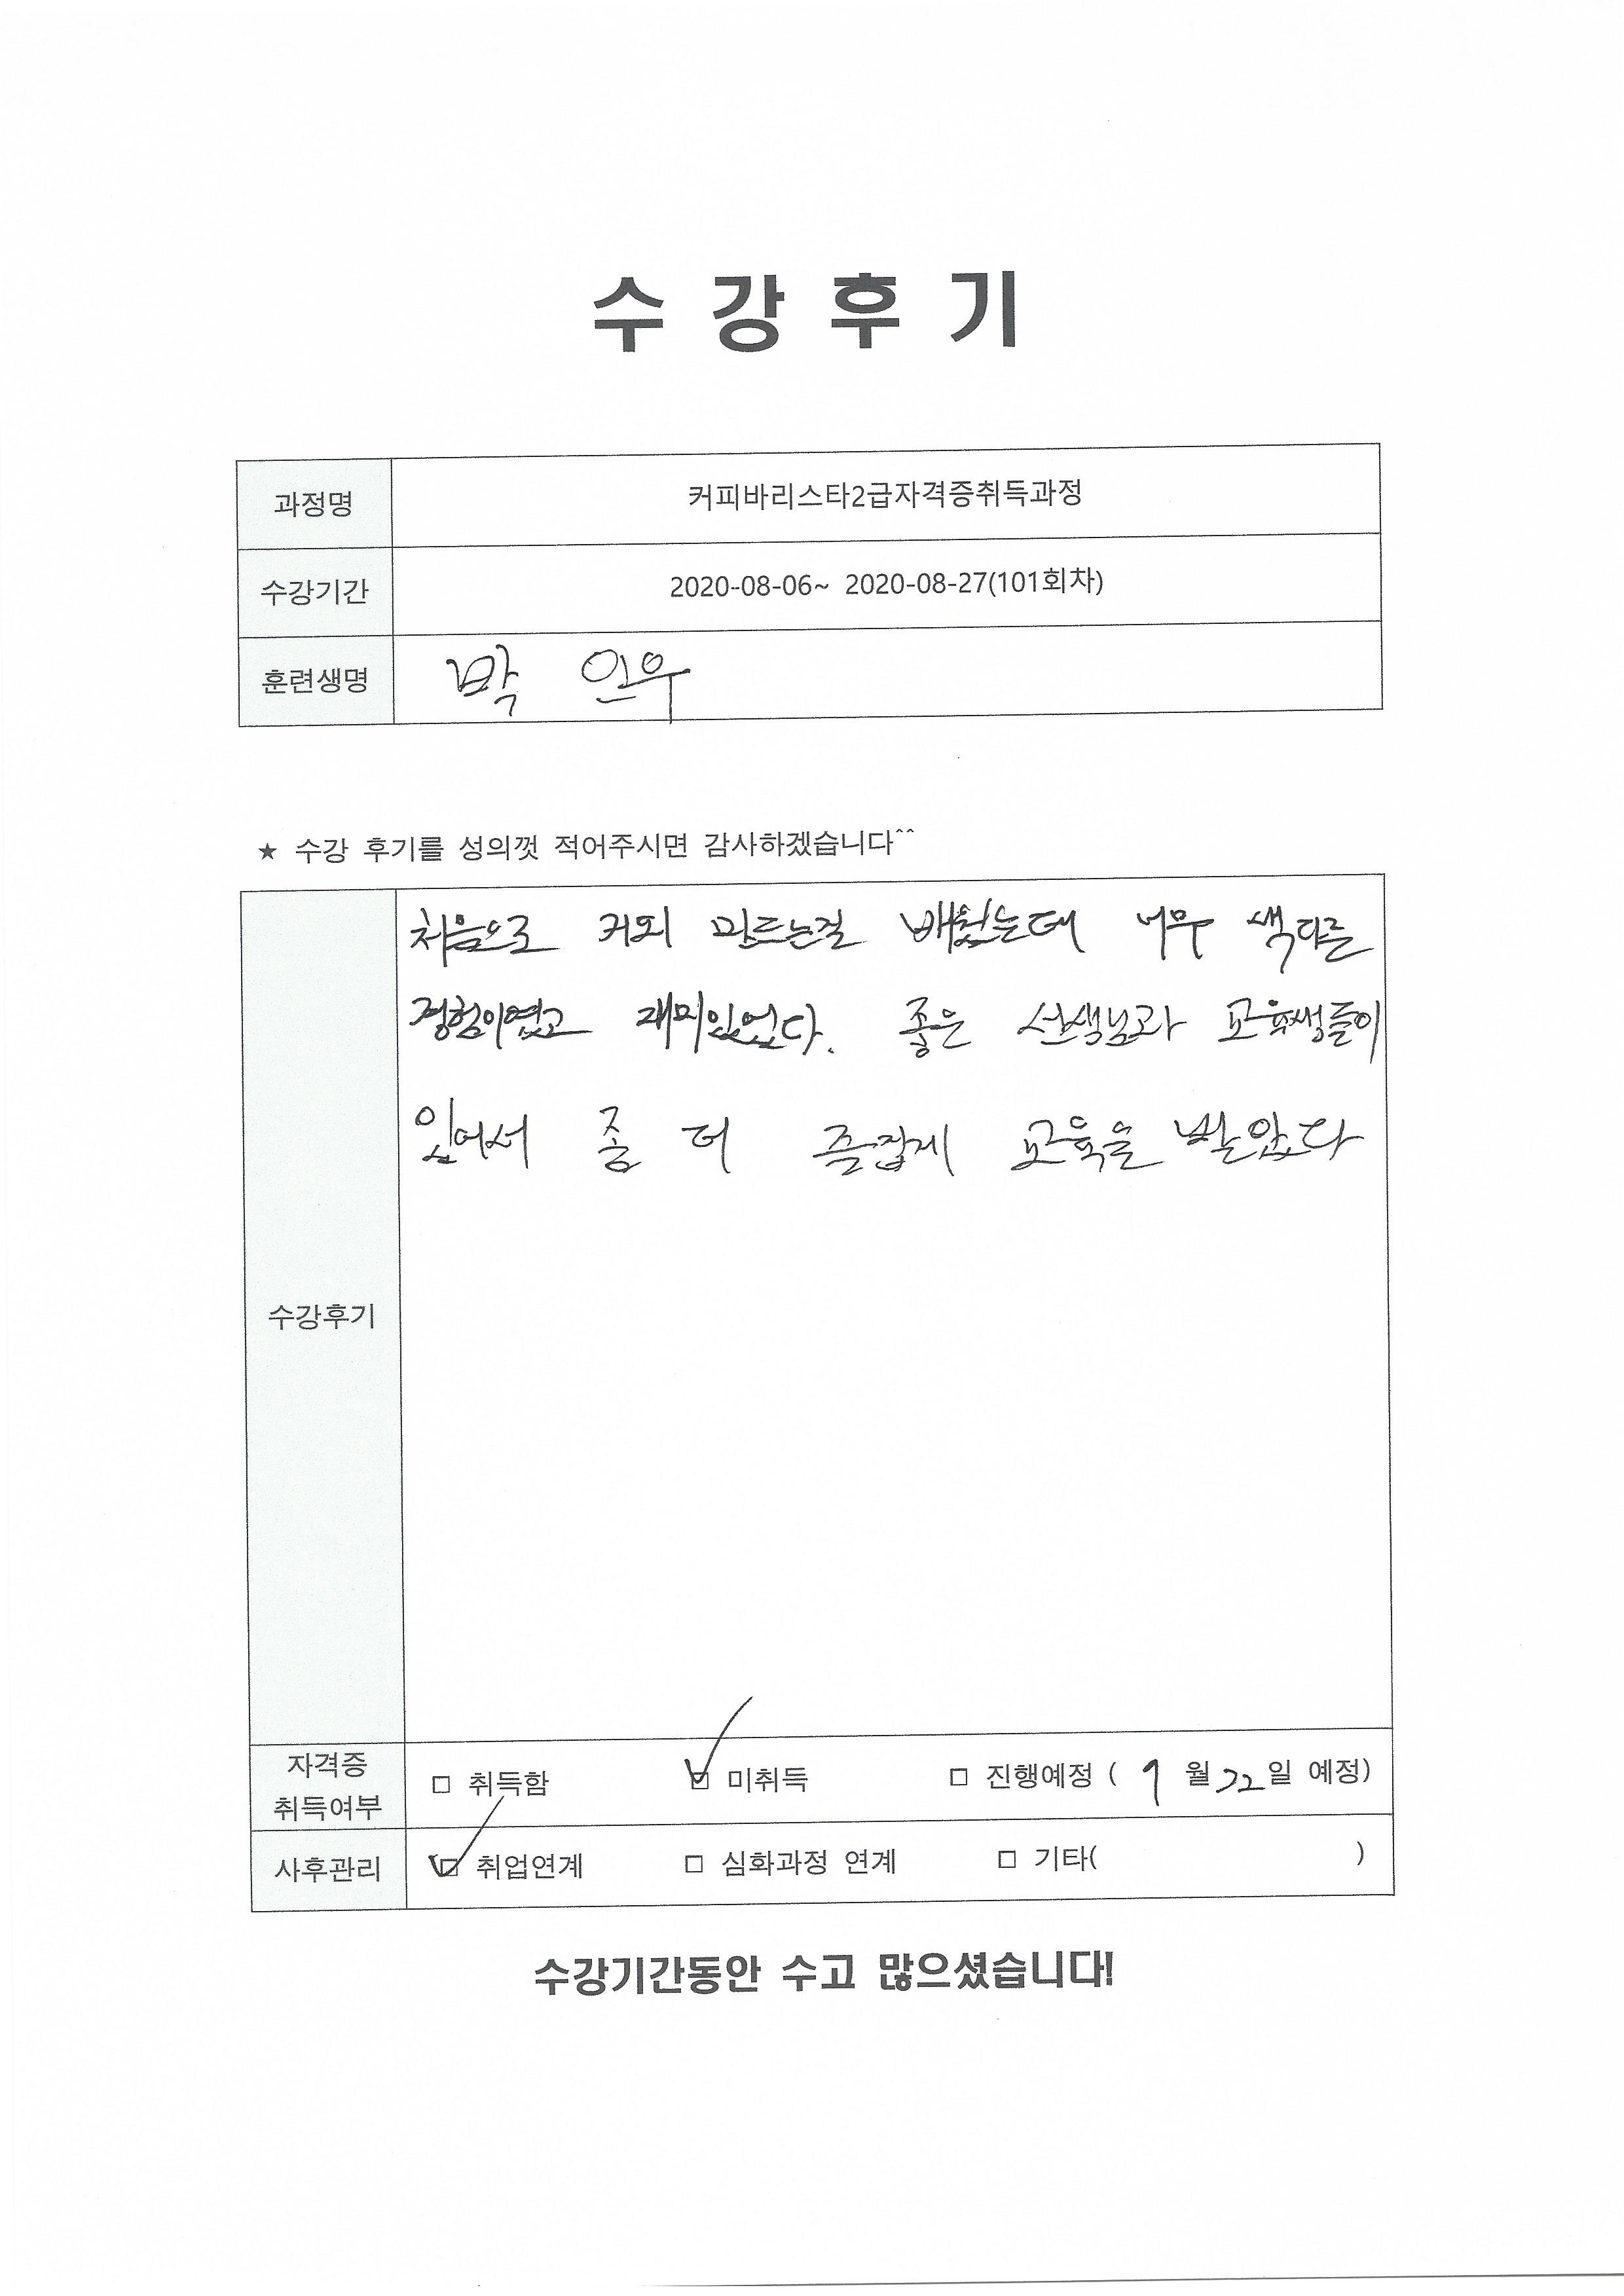 수강후기
과정명 커피바리스타2급자격증취득과정
수강기간 2020-08-06~ 2020-08-27(101회차)
훈련생명 박 인우
★ 수강 후기를 성의껏 적어주시면 감사하겠습니다^^
처음으로 커피 만드는걸 배웠는데 너무 색다른
경험이였고 재미있었다. 좋은 선생님과 교육생들이
있어서 좀 더 즐겁게 교육을 받았다
수강후기
자격증
취득여부
□ 취득함 ☑ 미취득 □ 진행예정 ( 9 월 22 일 예정)
사후관리 ☑ 취업연계 □ 심화과정 연계 □ 기타( )
수강기간동안 수고 많으셨습니다!